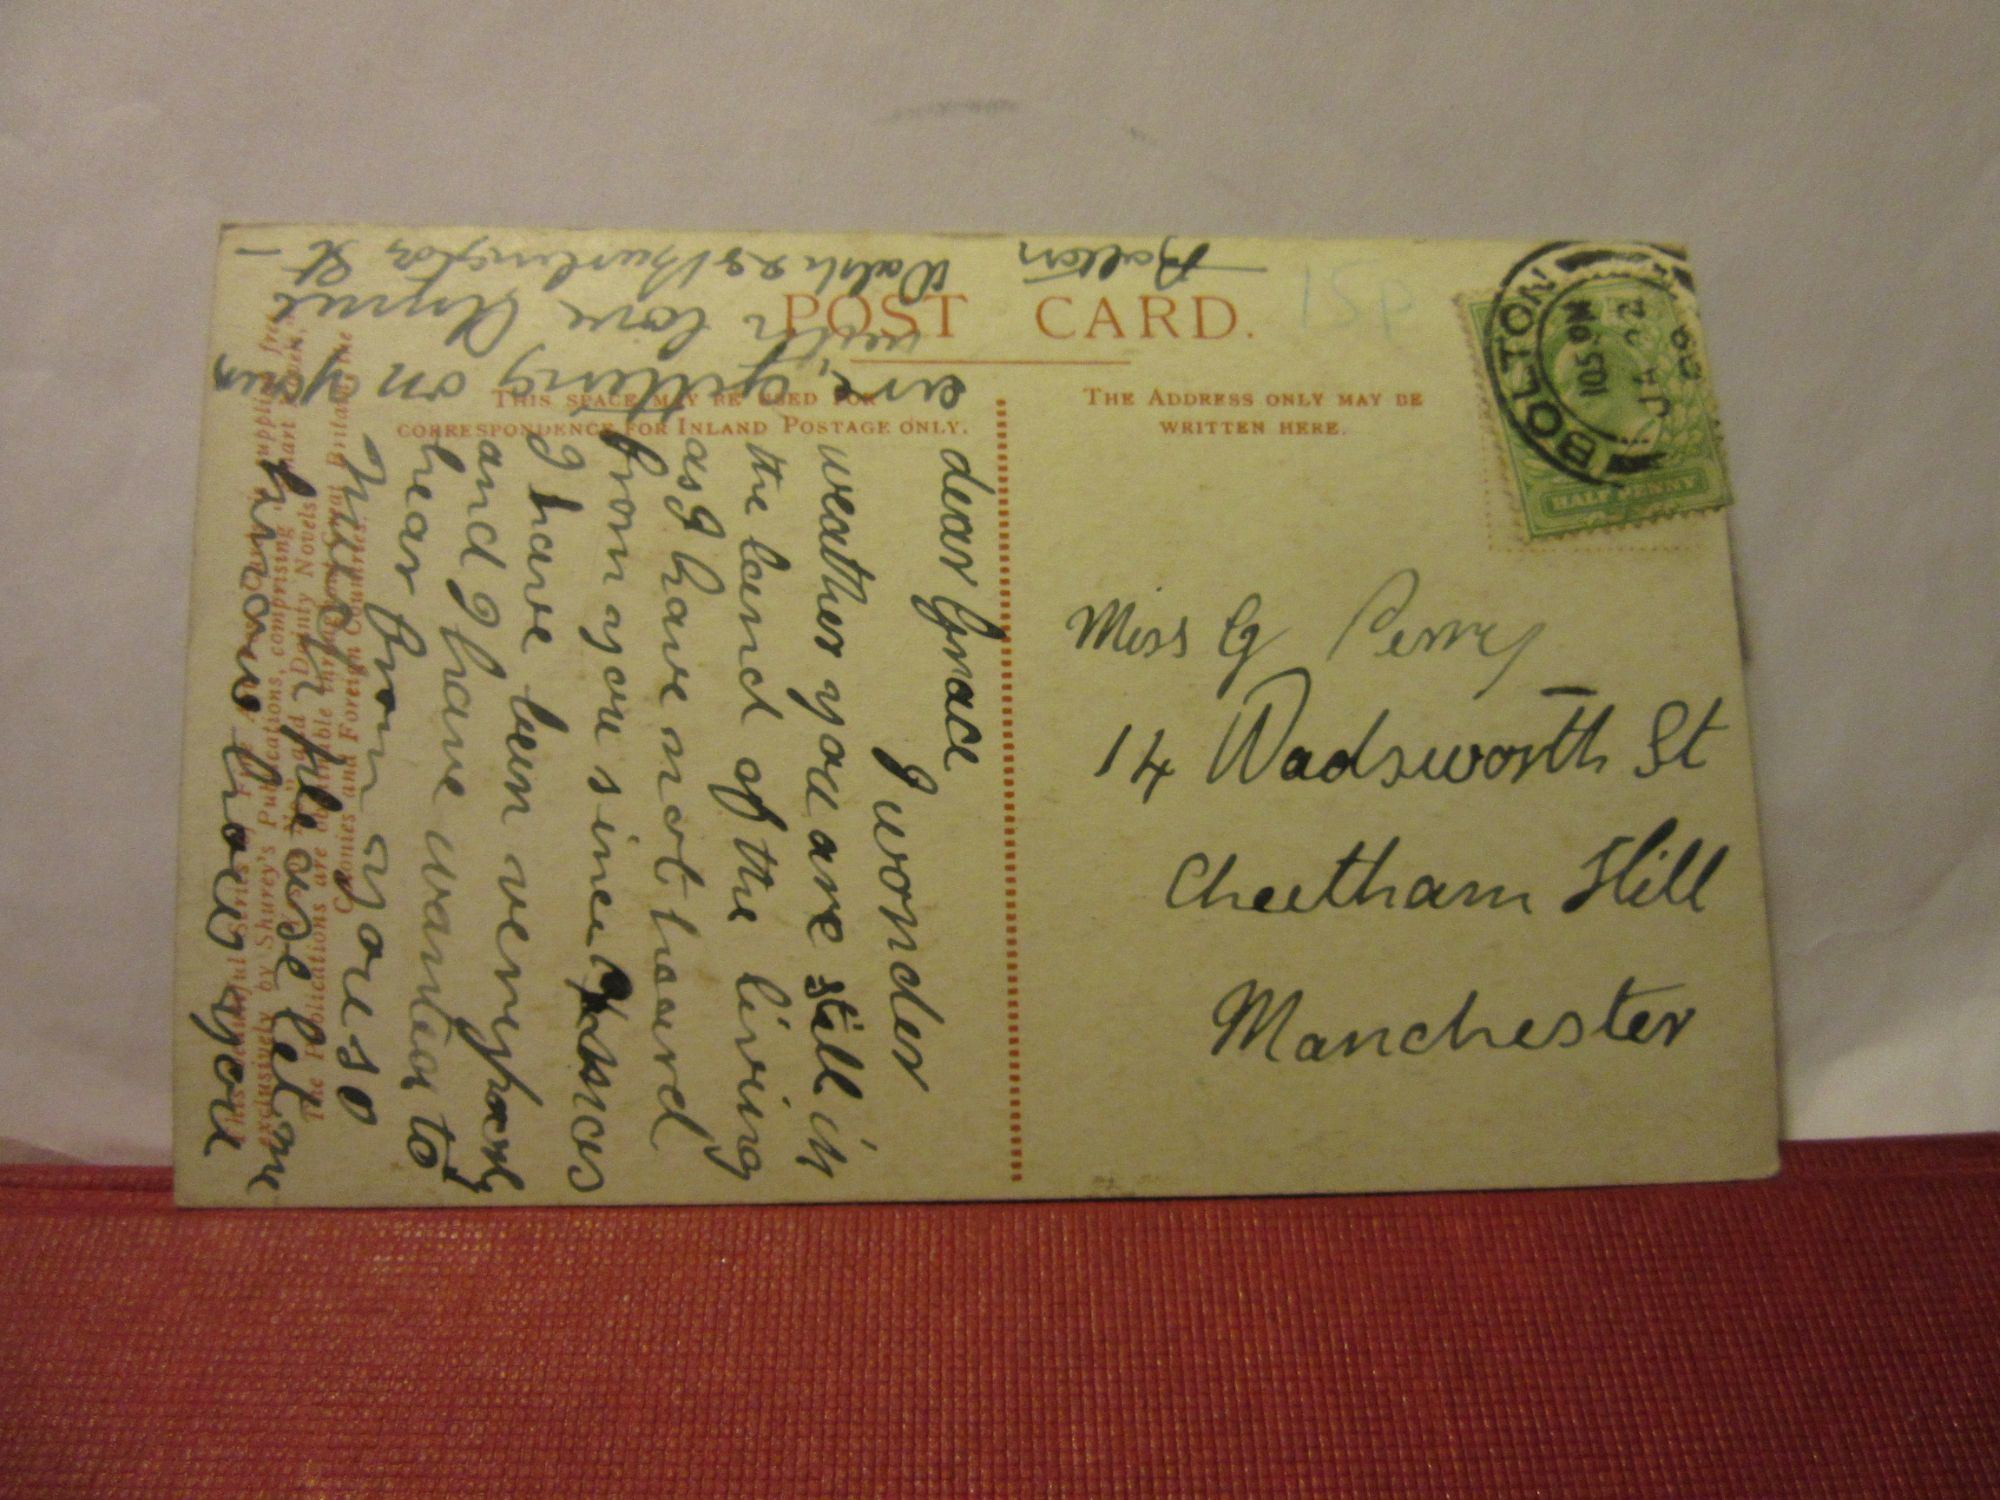 POST CARD.
15p
THIS SPACE MAY BE USED FOR
CORRESPONDENCE FOR INLAND POSTAGE ONLY.
THE ADDRESS ONLY MAY BE
WRITTEN HERE.
BOLTON
10 59 PM
JA 22
HALF PENNY
Miss G Perry
14 Wadsworth St
Cheetham Hill
Manchester
dear Grace
I wonder
weather you are still in
the land of the living
as I have not heard
from you since
I have been very poorly
and I have wanted to
hear from you so
much please let me
know how you
are getting on yours
with love
Burlington St
Bolton
This Beautiful Series of Fine Art Post Cards is supplied free
exclusively by Shurey's Publications, comprising "Smart Novels,"
and "Dainty Novels."
The Publications are obtainable throughout Great Britain, the
Colonies and Foreign Countries.